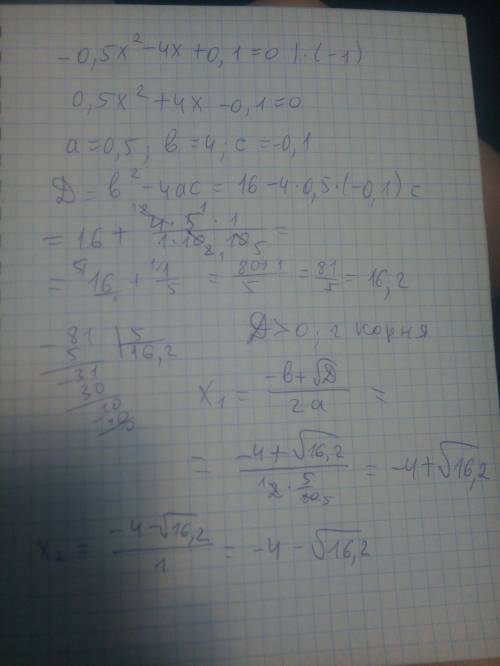 -0,5x² - 4x + 0,1 = 0 | · (-1)
0,5x² + 4x - 0,1 = 0
a = 0,5; b = 4; c = -0,1
D = b² - 4ac = 16 - 4 · 0,5 · (-0,1) c
= 16 + (4 · 5 · 1)/(1 · 10 · 10) =
= 16 + 1/5 = (80+1)/5 = 81/5 = 16,2
81 | 5
5 16,2
31
30
10
D > 0; 2 корня
x₁ = (-b + √D)/(2a) =
= (-4 + √16,2)/(2 · 5/10) = -4 + √16,2
x₂ = (-4 - √16,2)/1 = -4 - √16,2